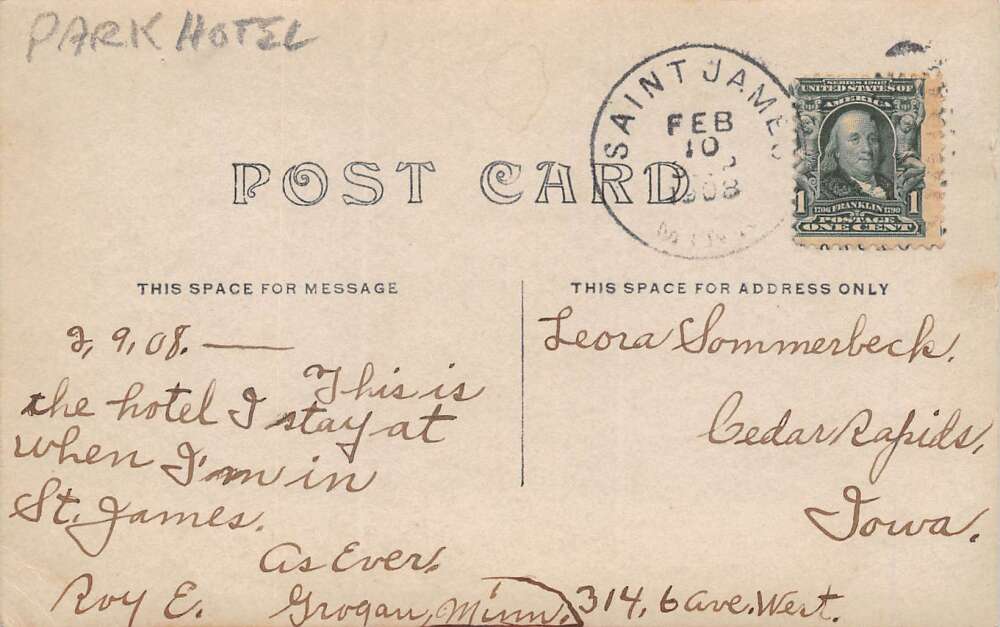 PARK HOTEL
SAINT JAMES
FEB
10
1908
MINN
SERIES 1902
UNITED STATES OF
AMERICA
1706 FRANKLIN 1790
POSTAGE
1 1
ONE CENT
POST CARD
THIS SPACE FOR MESSAGE
2, 9, 08. —
This is
the hotel I stay at
when I'm in
St. James.
As Ever,
Roy E. Grogan, Minn.
THIS SPACE FOR ADDRESS ONLY
Leora Sommerbeck.
Cedar Rapids,
Iowa.
314, 6 ave. West.